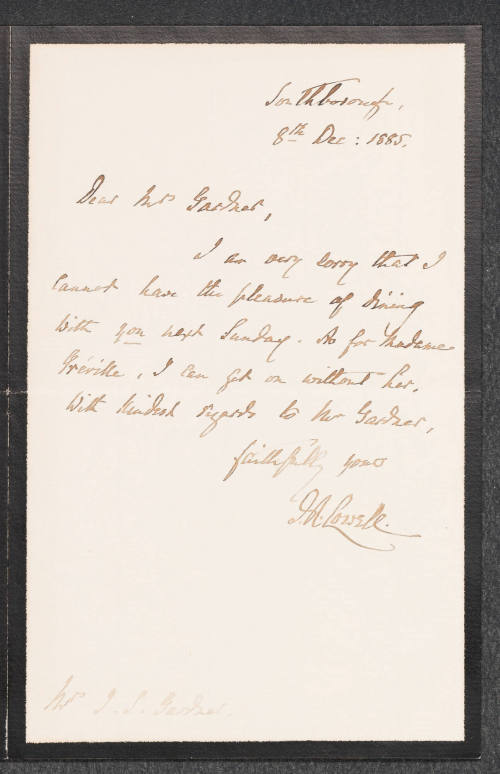 Southborough,
8th Dec: 1885.
Dear Mrs Gardner,
I am very sorry that I
cannot have the pleasure of dining
with you next Sunday. As for Madame
Gréville, I can get on without her.
With kindest regards to Mr Gardner,
faithfully yours
J. R. Lowell.
Mrs J. L. Gardner.